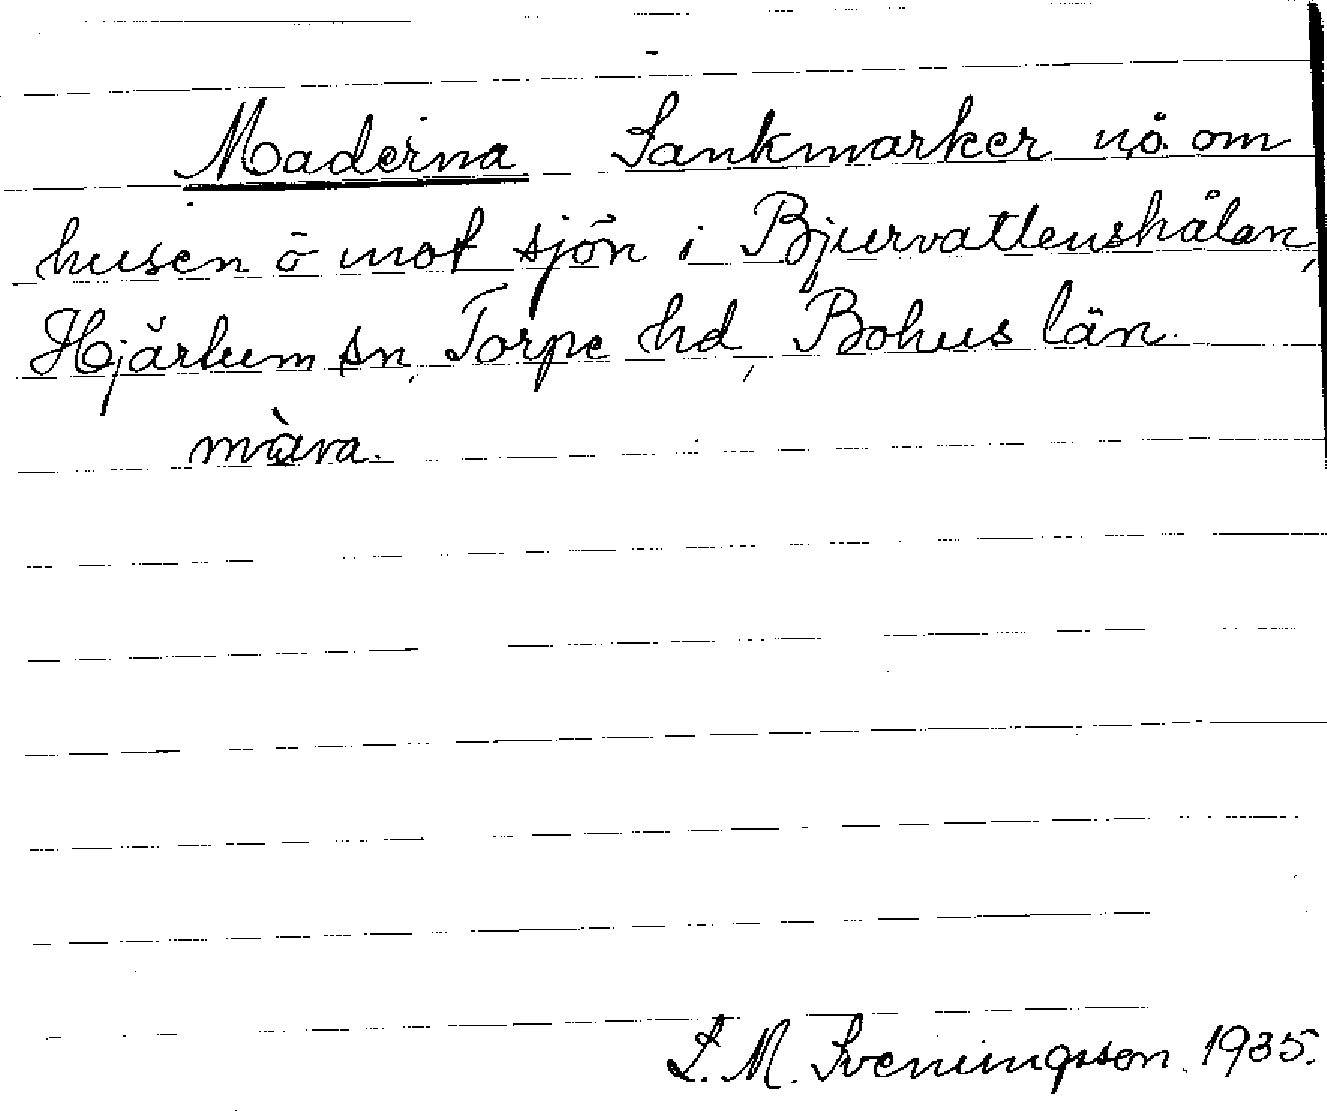 Maderna Sankmarker nö. om
husen ö mot sjön i Bjurvattenshålan,
Hjärtum sn, Torpe hd, Bohus län.
màra.
L. M. Sveningsson. 1935.